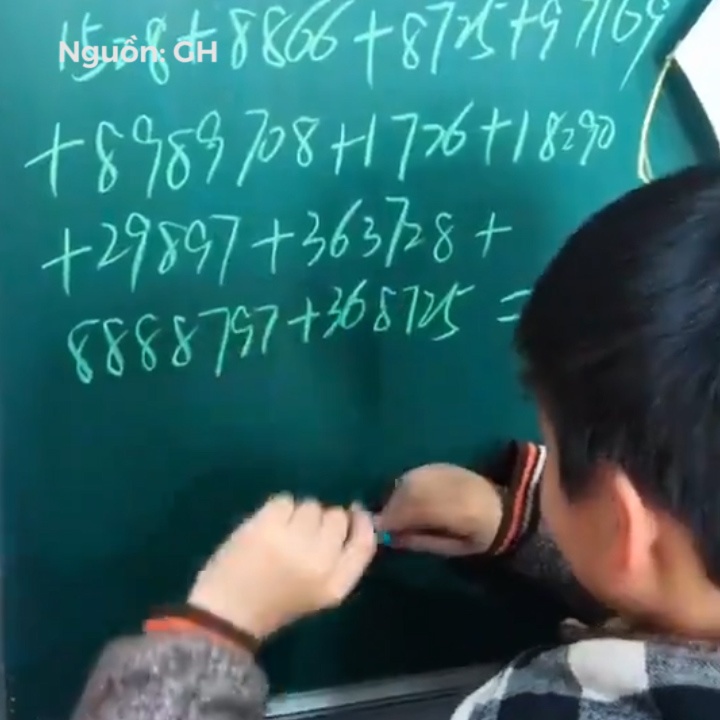 Nguồn: CH
+8866+8725+97169
+8989708+1726+18290
+29897+363728+
8888797+368725=